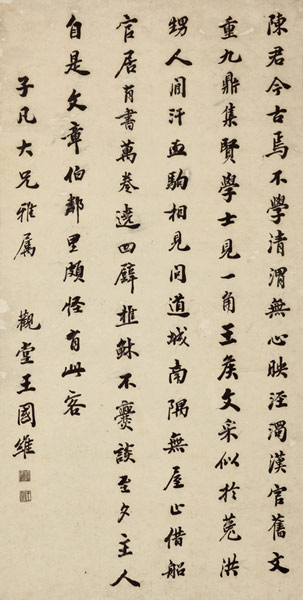 陳君今古焉不學清渭無心映涇濁漢官舊文
重九鼎集賢學士見一角王侯文采似於菟洪
甥人間汗血駒相見問道城南隅無屋止借船
官居有書萬卷遶四壁樵穌不爨談至夕主人
自是文章伯鄰里頗怪有此客
子凡大兄雅屬 觀堂王國維